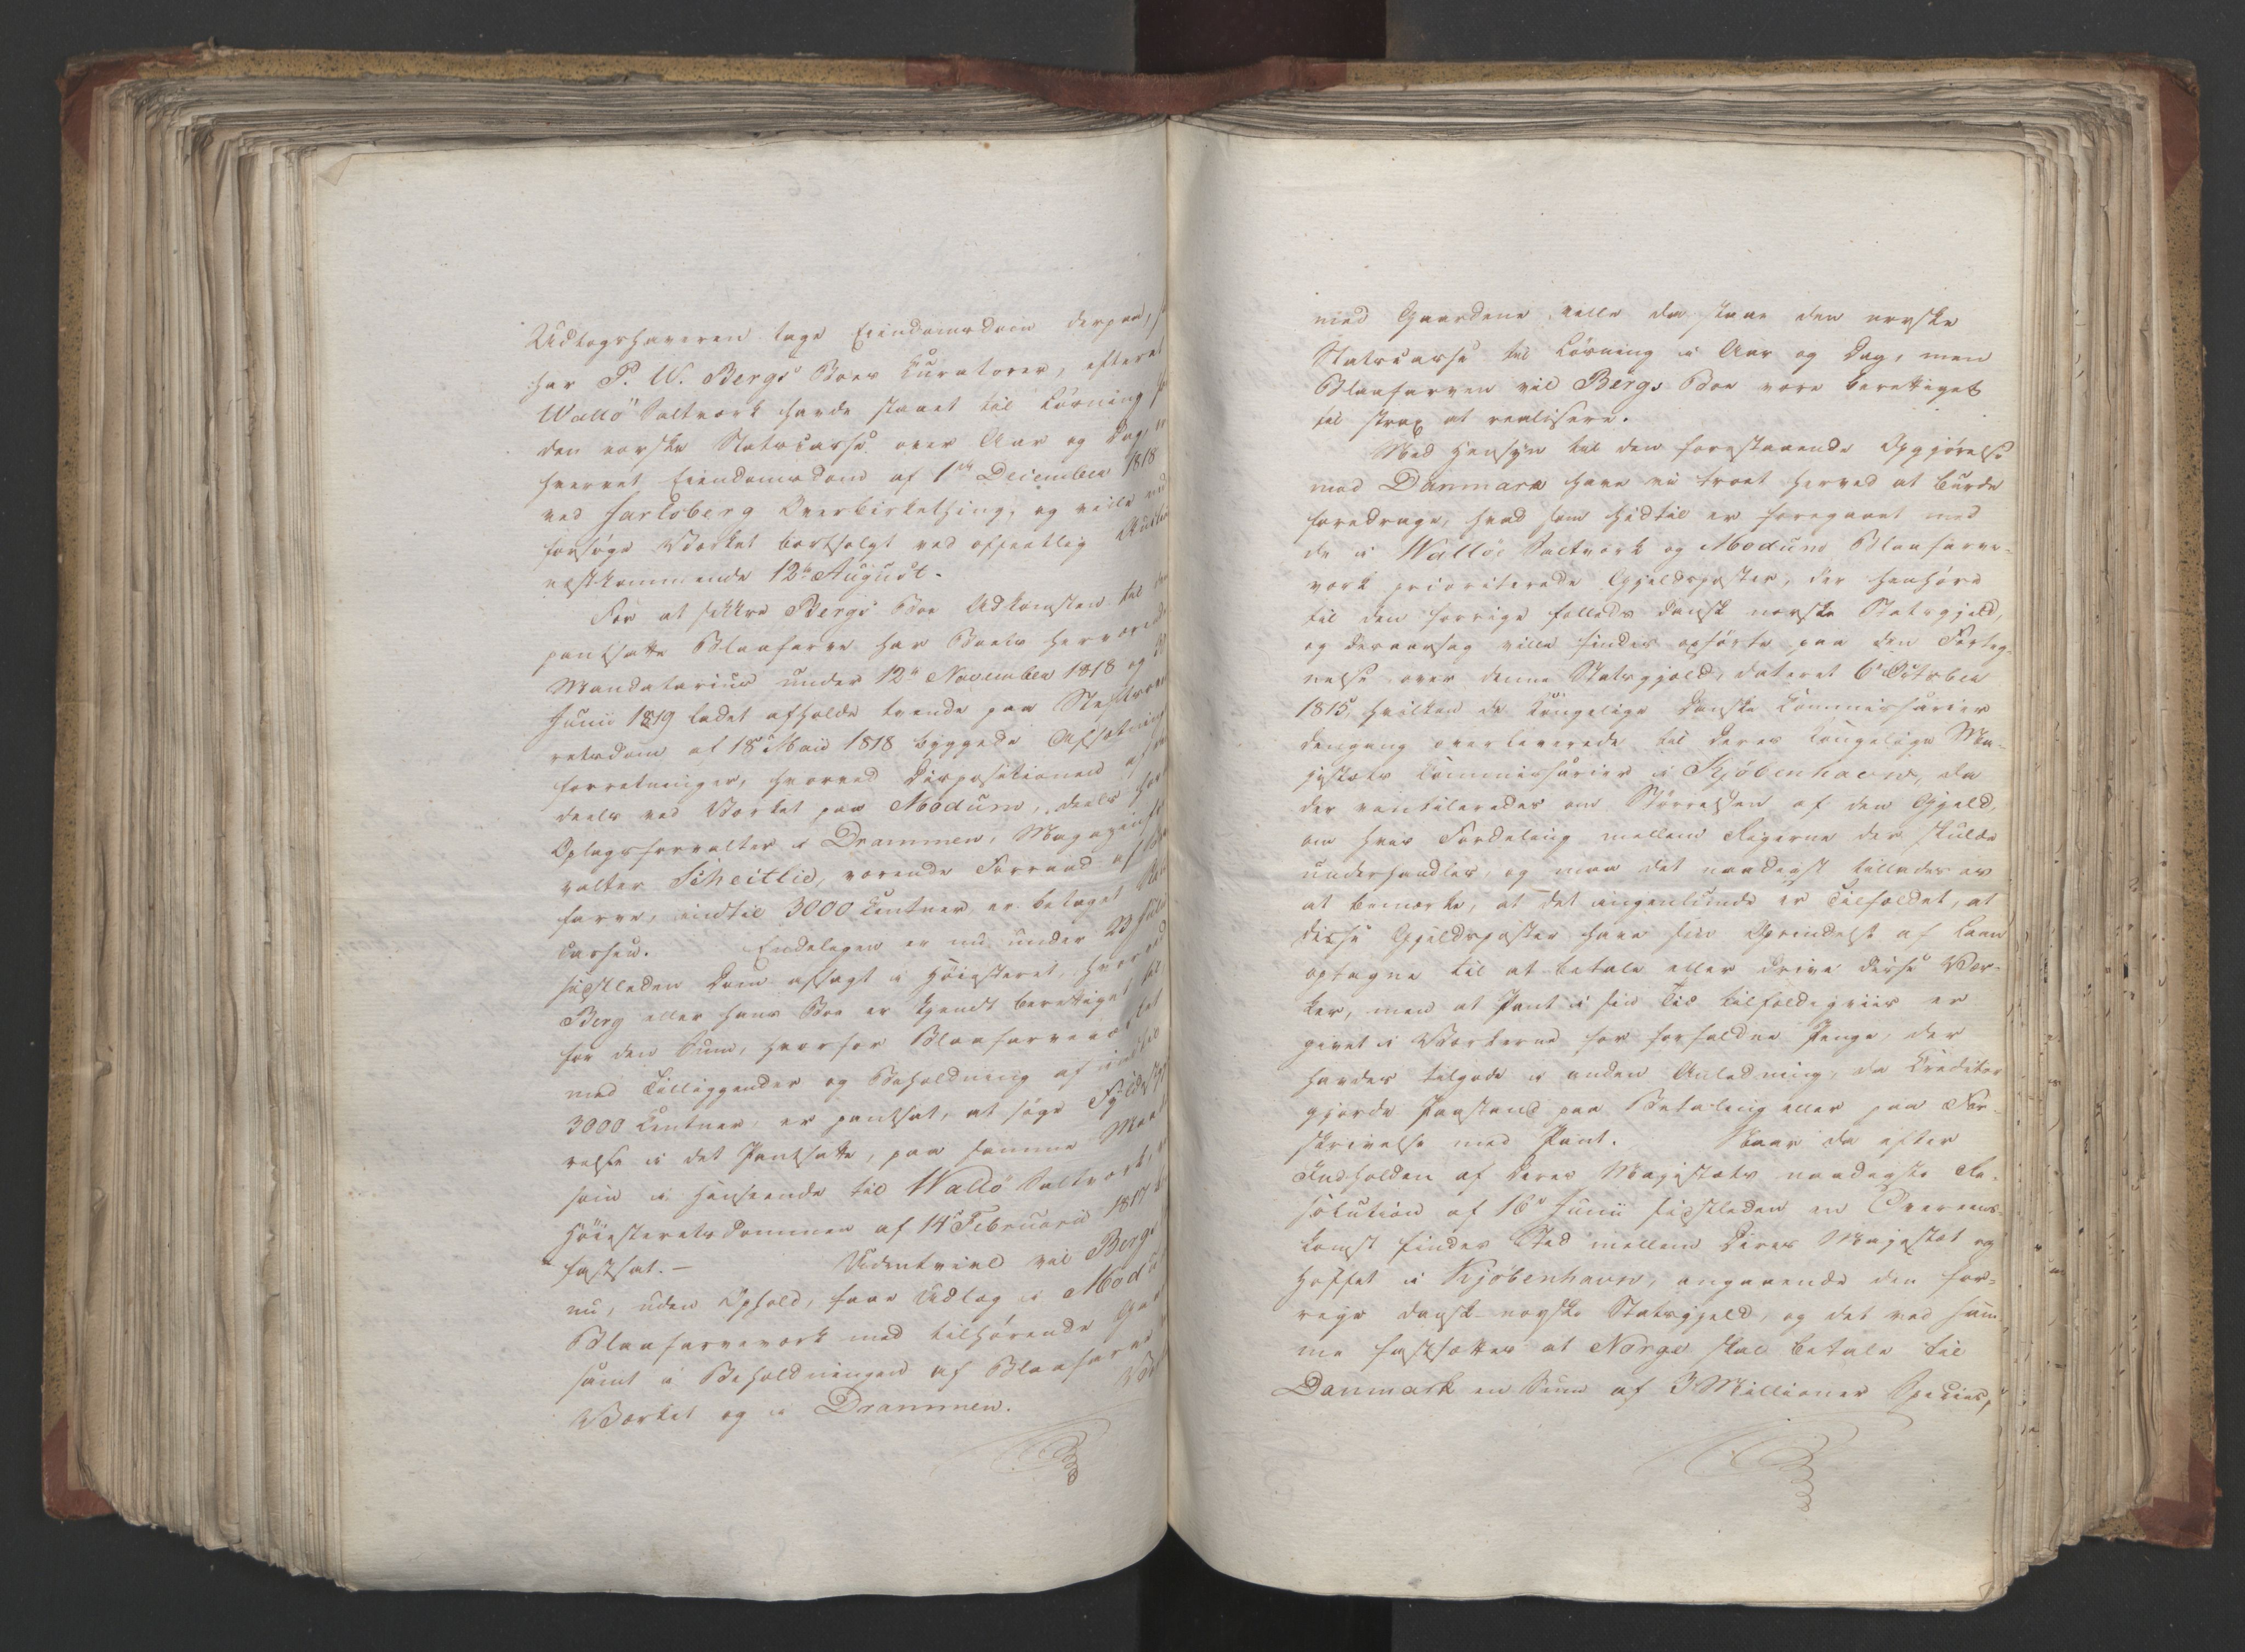 Udlægshaveren tage Eiendomsdom derpaa,
har P. W. Bergs Boes Curatorer, efterat
Wallö Saltværk havde staaet til Løsning
den norske Statscasse over Aar og Dag,
hvervet Eiendomsdom af 1ste December 1818
ved Jarlsberg Overbirkething, og ville
forsøge Værket bortsolgt ved offentlig
næstkommende 12te August.
For at sikkre Bergs Boe Adkomsten til
pantsatte Blaafarve har Boets herværende
Mandatarius under 12te November 1818 og
Junii 1819 ladet afholde tvende paa
retsdom af 18de Maii 1818 byggede
forretninger, hvorved Dispositionen af
deels ved Værket paa Modum, deels hos
Oplagsforvalter i Drammen, Magazinfor
valter Scheitlie, værende Forraad af
farve, indtil 3000 Centner er betaget
Cassen. Endeligen er nu under
sidstleden Dom afsagt i Høiesteret, hvorved
Berg eller hans Boe er kjendt berettiget
for den Sum, hvorfor Blaafarveværket
med Tilliggender og Beholdning af indtil
3000 Centner, er pantsat, at søge Fyldest
relse i det Pantsatte, paa samme Maade
som i Henseende til Wallö Saltværk,
Høiesteretsdommen af 14de Februarii 1817
fastsat. — Udentvivl vil Bergs
nu, uden Ophold, faae Udlæg i Modums
Blaafarveværk med tilhørende
samt i Beholdningen af Blaafarve
Værket og i Drammen.
med Gaardene ville da staae den norske
Statscasse til Løsning i Aar og Dag, men
Blaafarven vil Bergs Boe være berettiget
til strax at realisere.
Med Hensyn til den forestaaende Opgjørelse
med Danmark have vi troet herved at burde
foredrage, hvad som hidtil er foregaaet med
de i Walløe Saltværk og Modums Blaafarve-
værk prioriterede Gjeldsposter, der henhøre
til den forrige fælleds dansk norske Statsgjeld,
og deraarsag ville findes opførte paa den Forteg-
nelse over denne Statsgjeld, dateret 6te October
1815, hvilken de Kongelige Danske Commissarier
dengang overleverede til Deres Kongelige Ma-
jestæts Commissarier i Kjøbenhavn, da
der ventileredes om Størrelsen af den Gjeld,
om hvis Fordeling mellem Rigerne der skulde
underhandles, og maa det naadigst tillades os
at bemærke, at det ingenlunde er Tilfældet, at
disse Gjeldsposter have sin Oprindelse af Laan
optagne til at betale eller drive disse Vær-
ker, men at Pant i sin Tid tilfældigviis er
givet i Værkerne for forfaldne Penge, der
havdes tilgode i anden Anledning, da Creditor
gjorde Paastand paa Betaling eller paa For-
skrivelse med Pant. Naar da efter
Indholden af Deres Majestæts naadigste Re-
solution af 16de Junii sidstleden en Overeens-
komst findes Sted mellem Deres Majestæt og
Hoffet i Kjøbenhavn, angaaende den for-
rige dansk-norske Statsgjeld, og det ved sam-
me fastsættes at Norge skal betale til
Danmark en Sum af 3 Millioner Species,